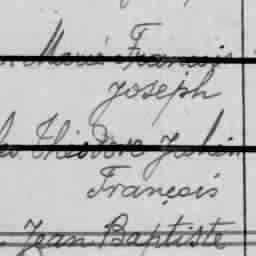 Marie François
Joseph
Théodore Julien
François
Jean Baptiste